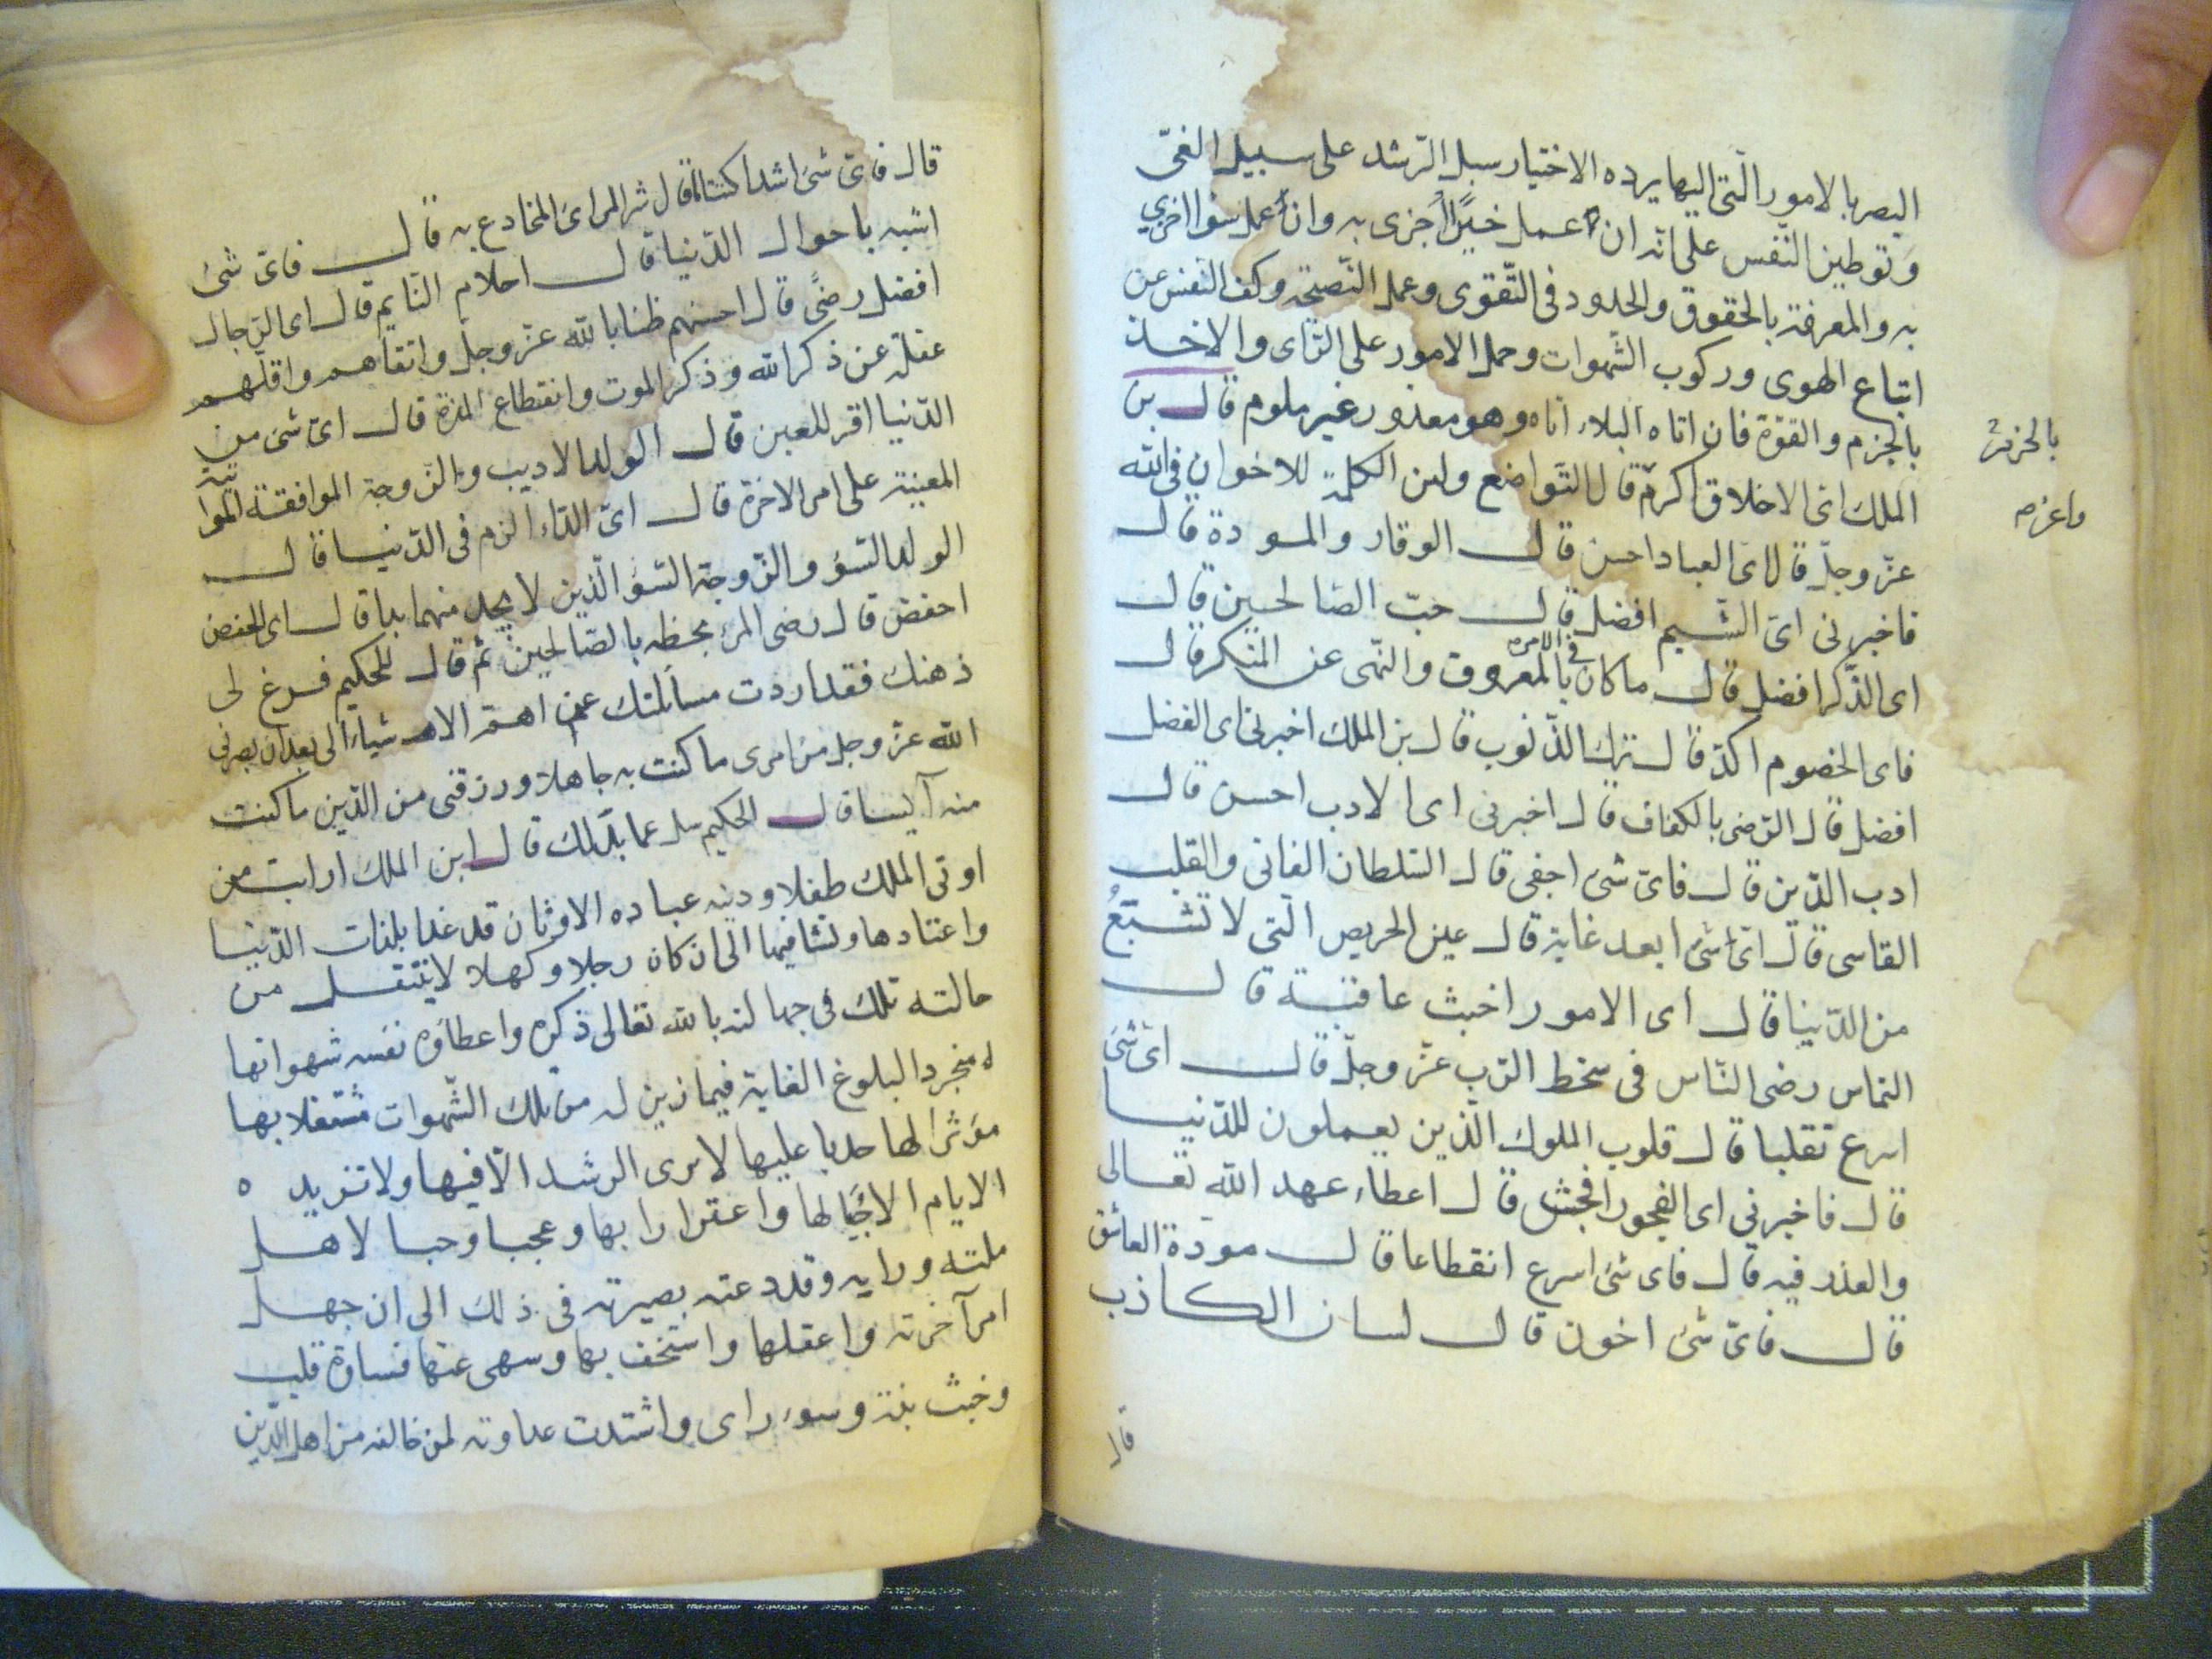 البصر بالامور الّتى اليها يرده الاختيار سبل الرّشد على سبيل الغىّ
وتوطين النّفس على انّه ان عمل خيرًا جزى به وان عمل سوا اجزى
به والمعرفة بالحقوق والحدود فى التّقوى وعمل النّصيحة وكف النّفس عن
اتباع الهوى وركوب الشّهوات وحمل الامور على الرّاى والاخذ
بالجزم والقوّة فان اتاه البلاء اتاه وهو معذور غير ملوم قال بن
بالحزم
الملك اىّ الاخلاق اكرم قال التّواضع ولين الكلمة للاخوان فى الله
واعزم
عزّ وجلّ قال اىّ العباد احسن قال الوقار والمودة قال
فاخبرنى اىّ الشّيم افضل قال حبّ الصّالحين قال
اى الذّكر افضل قال ما كان فى الامر بالمعروف والنّهى عن المنكر قال
فاى الخصوم اكدّ قال ترك الذّنوب قال بن الملك اخبرنى اى الفضل
افضل قال الرّضى بالكفاف قال اخبرنى اى الادب احسن قال
ادب الدّين قال فاىّ شىء اجفى قال السّلطان الفانى والقلب
القاسى قال اىّ شىء ابعد غاية قال عين الحريص الّتى لا تشبع
من الدّنيا قال اى الامور اخبث عاقبة قال
التماس رضى النّاس فى سخط الرّب عزّ وجلّ قال اىّ شىء
اسرع تقلبا قال قلوب الملوك الّذين يعملون للدّنيا
قال فاخبرنى اى الفجور افحش قال اعطاء عهد الله تعالى
والعذر فيه قال فاى شىء اسرع انقطاعا قال مودة العاشق
قال فاىّ شىء اخون قال لسان الكاذب
قال
قال فاىّ شىء اشدا كتتاما قال شر المراىء المخادع به قال فاىّ شىء
اشبه باحوال الدّنيا قال احلام النّايم قال اى الرّجال
افضل رضىً قال احسنهم ظنا بالله عزّ وجلّ واتقاهم واقلّهم
غفلة عن ذكر الله وذكر الموت وانقطاع المدّة قال اىّ شىء من
الدّنيا اقر للعين قال الولد الاديب والزّوجة الموافقة المواتية
المعينة على امر الاخرة قال اىّ الدّاء الزم فى الدّنيا قال
الولد السّوء والزّوجة السّوء الّذين لا يجد منهما بدا قال اى الخفض
احفض قال رضى المرء بحظه بالصّالحين ثمّ قال للحكيم فرغ لى
ذهنك فقد اردت مسائلتك عن اهمّ الاشياء الى بعد ان بصرنى
الله عزّ وجل من امرى ما كنت به جاهلا ورزقنى من الدّين ما كنت
منه آيسا قال الحكيم سل عما بدّ لك قال ابن الملك ارايت من
اوتى الملك طفلا ودينه عباده الاوثان قد غدا بلذات الدّنيا
واعتادها ونشا فيها الى ان كان رجلا وكهلا لا ينتقل من
حالته تلك فى جهالته بالله تعالى ذكره واعطاؤه نفسه شهواتها
متجردا لبلوغ الغاية فيما زين له من تلك الشّهوات مشتغلا بها
مؤثرا لها حدبا عليها لا يرى الرشد الّا فيها ولا تزيده
الايام الا حبّا لها واغترارا بها وعجبا وحبا لاهل
ملته ورايه وقد دعته بصيرته فى ذلك الى ان جهل
امر آخرته واغفلها واستخف بها وسهى عنها قساوة قلب
وخبث نية وسوء راى واشتدت عداوته لمن خالفه من اهل الدّين